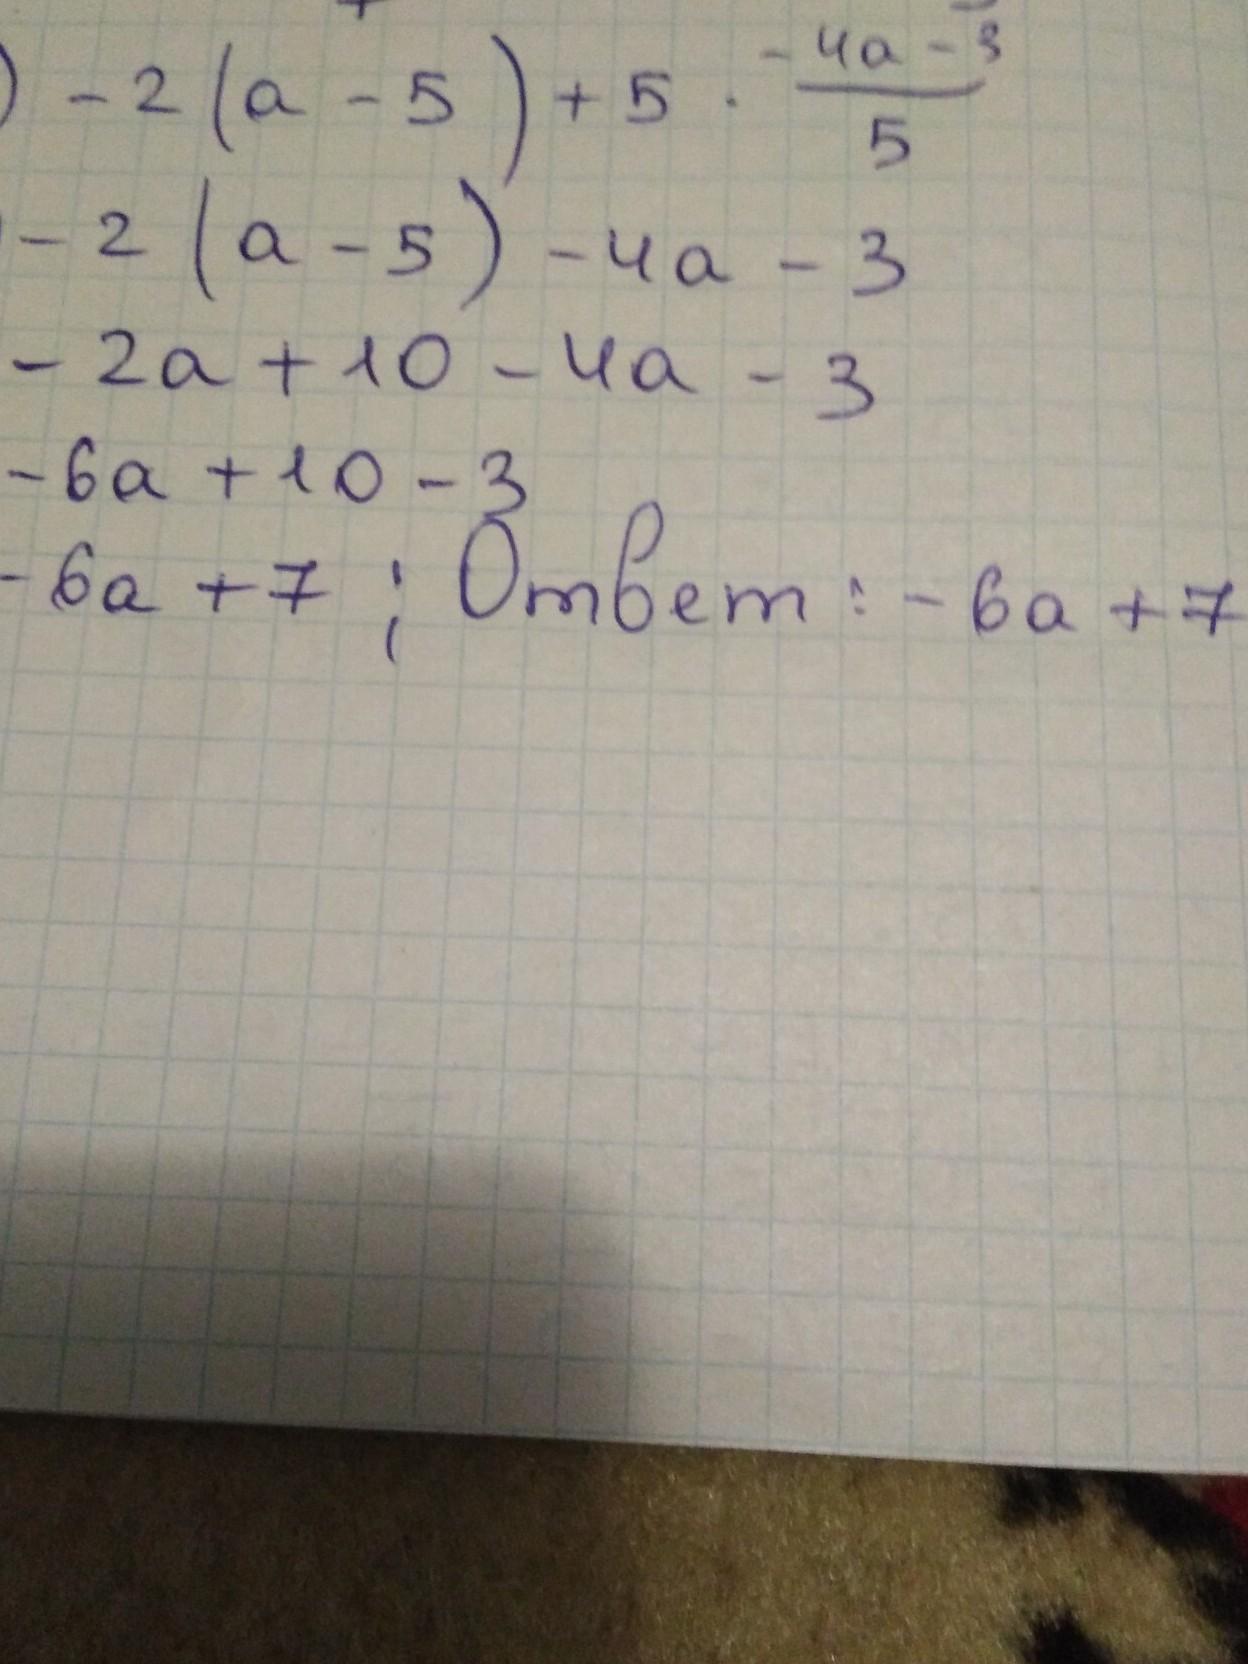 ) -2(a-5)+5·\frac{-4a-3}{5}
) -2(a-5)-4a-3
-2a+10-4a-3
-6a+10-3
-6a+7; Ответ: -6a+7